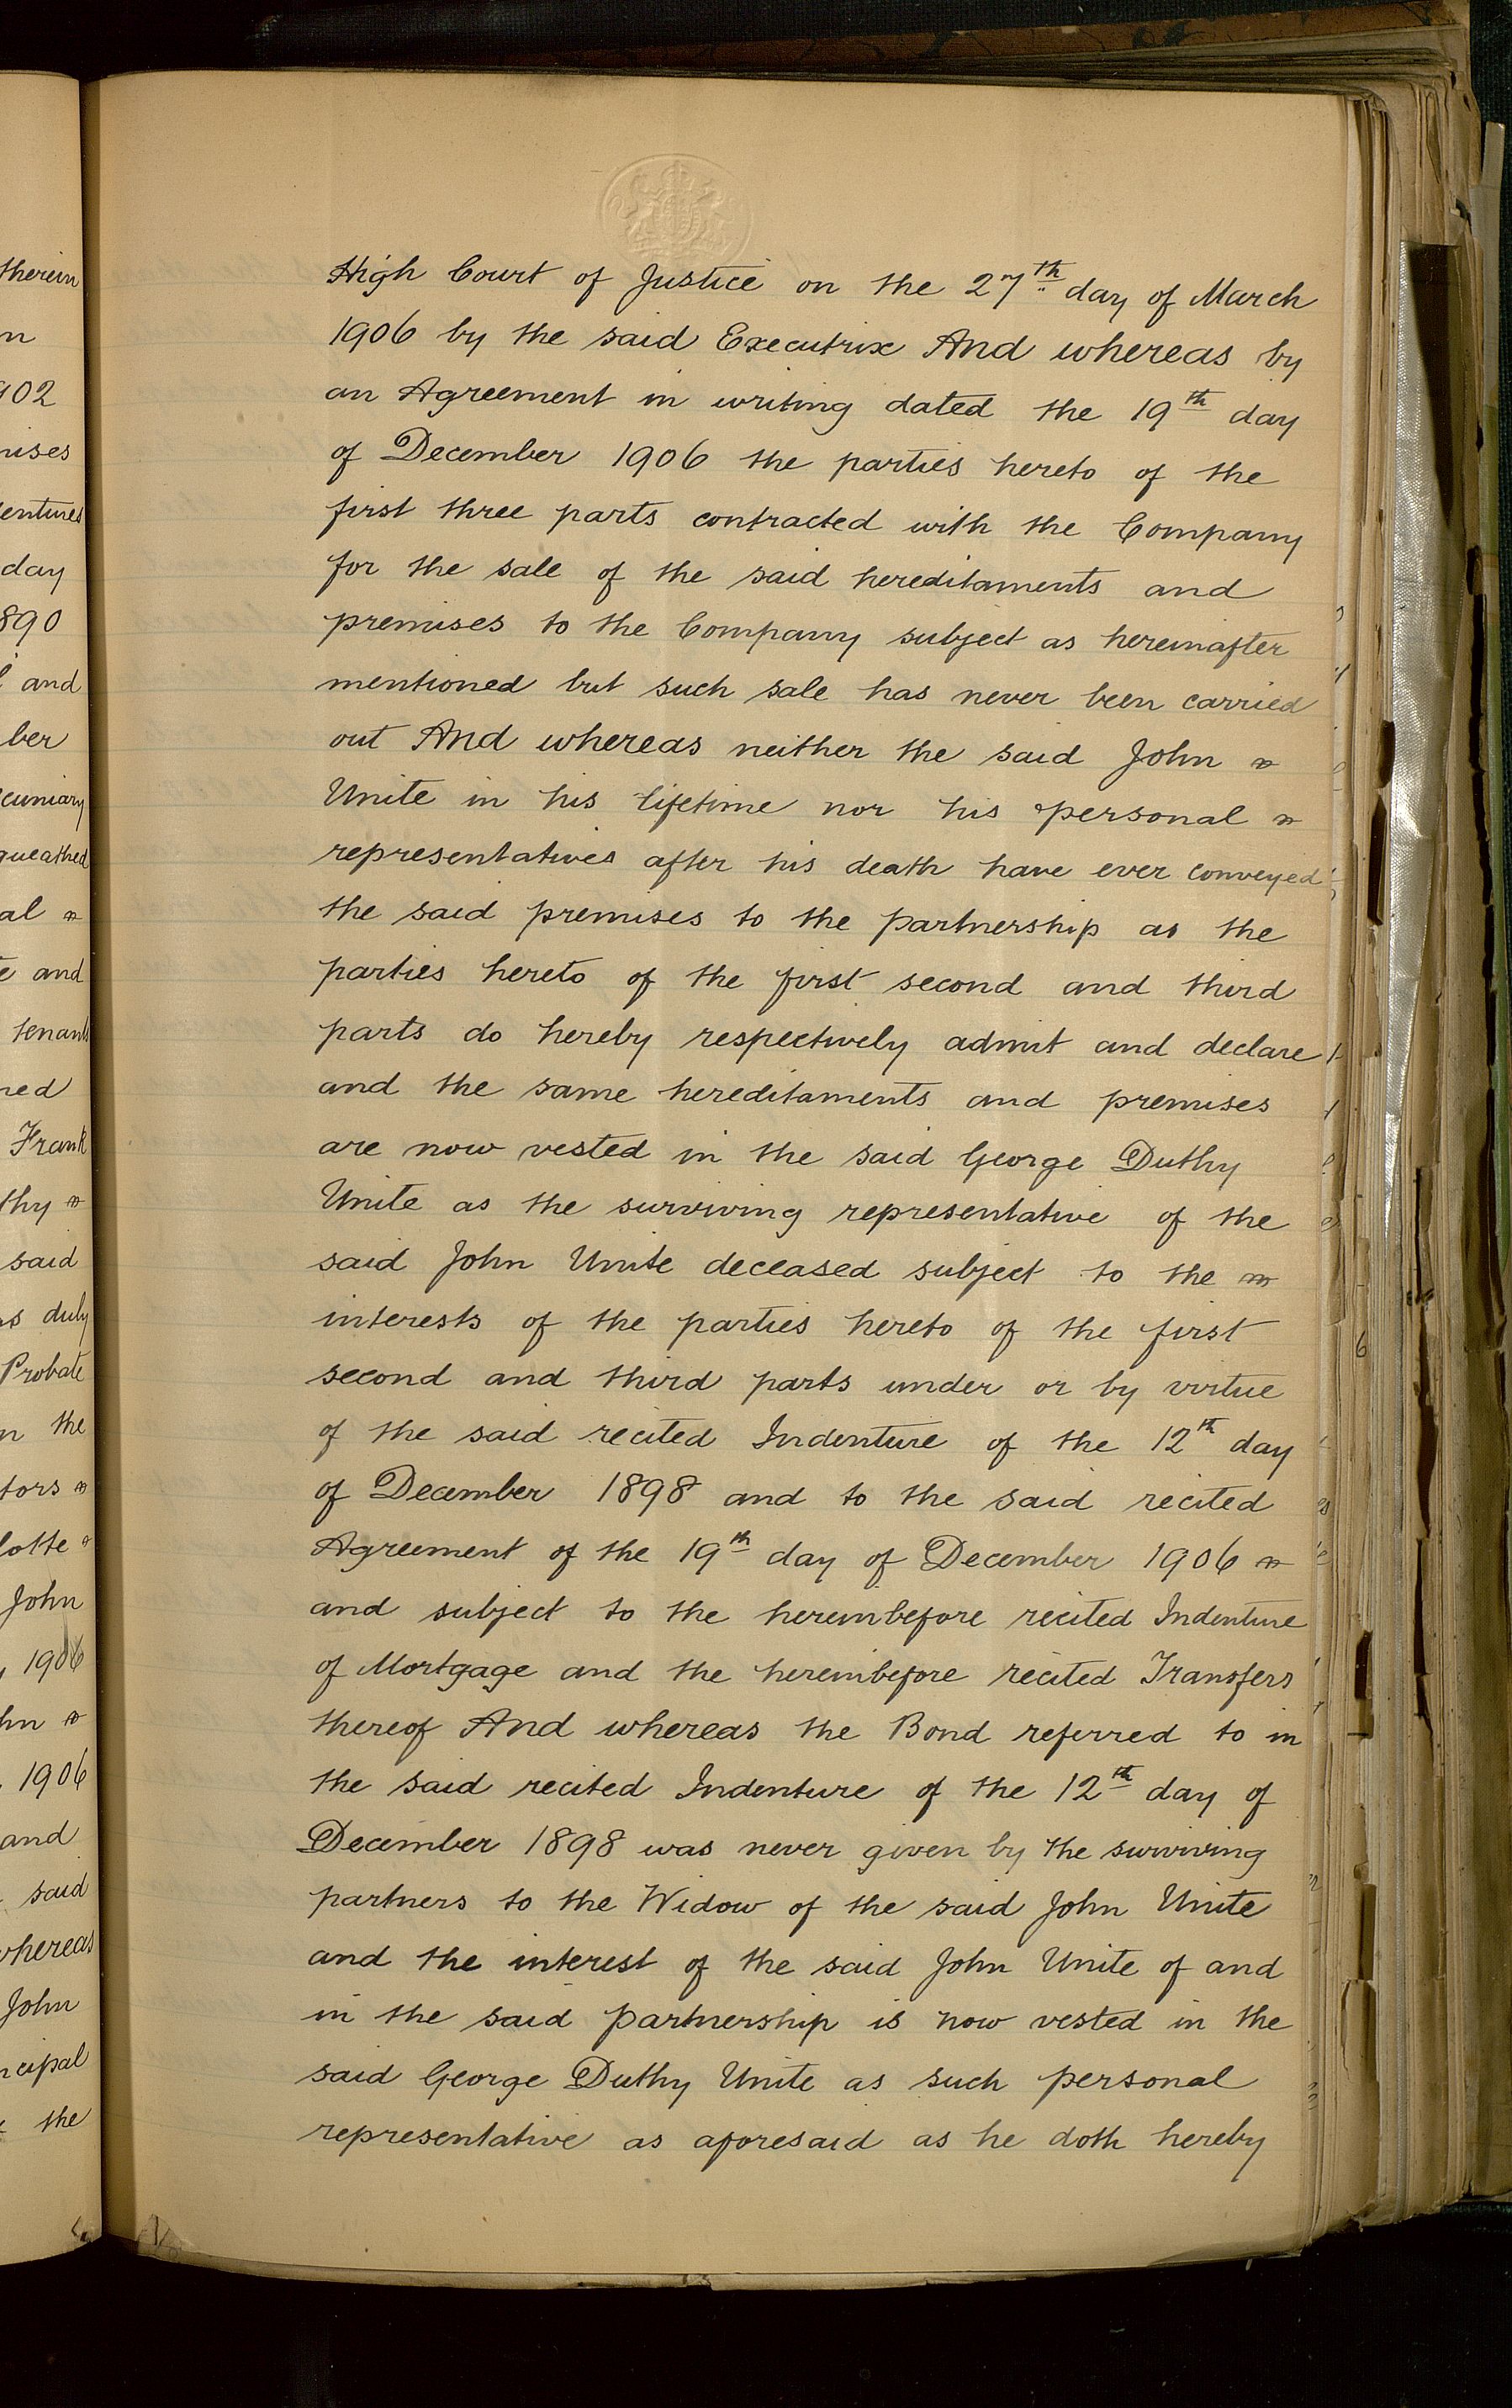 therein
n
902
entures
day
890
and
ber
al
and
Frank
thy
said
duly
Probate
the
John
1906
1906
and
said
whereas
John
the
High Court of Justice on the 27th day of March
1906 by the said Executrix And whereas by
an Agreement in writing dated the 19th day
of December 1906 the parties hereto of the
first three parts contracted with the Company
for the sale of the said hereditaments and
premises to the Company subject as hereinafter
mentioned but such sale has never been carried
out And whereas neither the said John
Unite in his lifetime nor his personal
representatives after his death have ever conveyed
the said premises to the partnership as the
parties hereto of the first second and third
parts do hereby respectively admit and declare
and the same hereditaments and premises
are now vested in the said George Duthy
Unite as the surviving representative of the
said John Unite deceased subject to the
interests of the parties hereto of the first
second and third parts under or by virtue
of the said recited Indenture of the 12th day
of December 1898 and to the said recited
Agreement of the 19th day of December 1906
and subject to the hereinbefore recited Indenture
of Mortgage and the hereinbefore recited Transfers
thereof And whereas the Bond referred to in
the said recited Indenture of the 12th day of
December 1898 was never given by the surviving
partners to the Widow of the said John Unite
and the interest of the said John Unite of and
in the said partnership is now vested in the
said George Duthy Unite as such personal
representative as aforesaid as he doth hereby